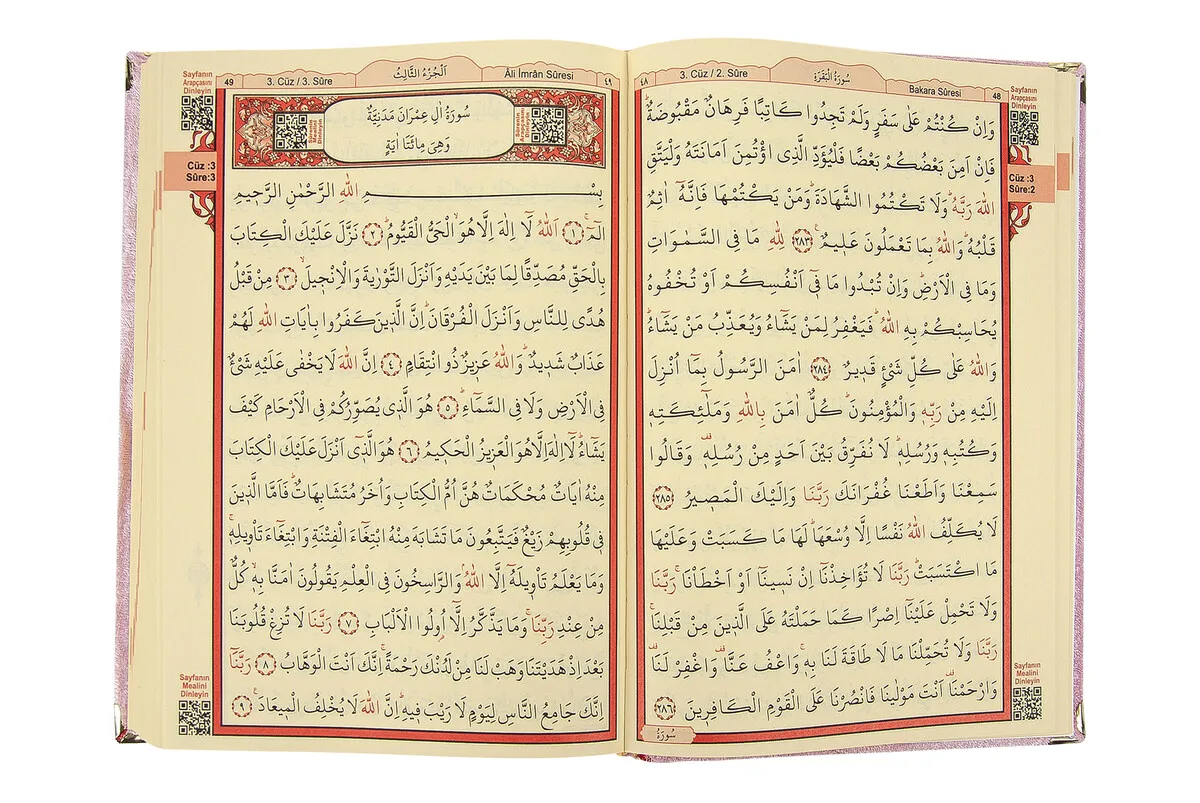 Sayfanın
Arapçasını
Dinleyin
48
Bakara Sûresi
سُورَةُ الْبَقَرَةِ
3. Cüz / 2. Sûre
٤٨
Cüz :3
Sûre:2
وَاِنْ كُنْتُمْ عَلٰى سَفَرٍ وَلَمْ تَجِدُوا كَاتِبًا فَرِهَانٌ مَقْبُوضَةٌۜ
فَاِنْ اَمِنَ بَعْضُكُمْ بَعْضًا فَلْيُؤَدِّ الَّذِي اؤْتُمِنَ اَمَانَتَهُ وَلْيَتَّقِ
اللّٰهَ رَبَّهُۜ وَلَا تَكْتُمُوا الشَّهَادَةَۜ وَمَنْ يَكْتُمْهَا فَاِنَّهُٓ اٰثِمٌ
قَلْبُهُۜ وَاللّٰهُ بِمَا تَعْمَلُونَ عَلِيمٌ۟ ﴿٢٨٣﴾ لِلّٰهِ مَا فِي السَّمٰوَاتِ
وَمَا فِي الْاَرْضِۜ وَاِنْ تُبْدُوا مَا فِٓي اَنْفُسِكُمْ اَوْ تُخْفُوهُ
يُحَاسِبْكُمْ بِهِ اللّٰهُۜ فَيَغْفِرُ لِمَنْ يَشَٓاءُ وَيُعَذِّبُ مَنْ يَشَٓاءُۜ
وَاللّٰهُ عَلٰى كُلِّ شَيْءٍ قَدِيرٌ ﴿٢٨٤﴾ اٰمَنَ الرَّسُولُ بِمَٓا اُنْزِلَ
اِلَيْهِ مِنْ رَبِّهِ وَالْمُؤْمِنُونَۜ كُلٌّ اٰمَنَ بِاللّٰهِ وَمَلٰٓئِكَتِهِ
وَكُتُبِهِ وَرُسُلِهِۜ لَا نُفَرِّقُ بَيْنَ اَحَدٍ مِنْ رُسُلِهِ۠ وَقَالُوا
سَمِعْنَا وَاَطَعْنَا غُفْرَانَكَ رَبَّنَا وَاِلَيْكَ الْمَصِيرُ ﴿٢٨٥﴾
لَا يُكَلِّفُ اللّٰهُ نَفْسًا اِلَّا وُسْعَهَاۜ لَهَا مَا كَسَبَتْ وَعَلَيْهَا
مَا اكْتَسَبَتْۜ رَبَّنَا لَا تُؤَاخِذْنَٓا اِنْ نَسِينَٓا اَوْ اَخْطَأْنَاۚ رَبَّنَا
وَلَا تَحْمِلْ عَلَيْنَٓا اِصْرًا كَمَا حَمَلْتَهُ عَلَى الَّذِينَ مِنْ قَبْلِنَاۚ
رَبَّنَا وَلَا تُحَمِّلْنَا مَا لَا طَاقَةَ لَنَا بِهِۚ وَاعْفُ عَنَّا۠ وَاغْفِرْ لَنَا۠
وَارْحَمْنَا۠ اَنْتَ مَوْلٰينَا فَانْصُرْنَا عَلَى الْقَوْمِ الْكَافِرِينَ ﴿٢٨٦﴾
سُورَةُ
Sayfanın
Mealini
Dinleyin
٤٩
Âli İmrân Sûresi
اَلْجُزْءُ الثَّالِثُ
3. Cüz / 3. Sûre
49
Sayfanın
Arapçasını
Dinleyin
Cüz :3
Sûre:3
Sûrenin
Arapçasını
Dinleyin
سُورَةُ اٰلِ عِمْرَانَ مَدَنِيَّةٌ
وَهِيَ مِائَتَا اٰيَةٍ
Sûrenin
Mealini
Dinleyin
بِسْمِ اللّٰهِ الرَّحْمٰنِ الرَّحِيمِ
الٓمٓۚ ﴿١﴾ اَللّٰهُ لَٓا اِلٰهَ اِلَّا هُوَۙ الْحَيُّ الْقَيُّومُۜ ﴿٢﴾ نَزَّلَ عَلَيْكَ الْكِتَابَ
بِالْحَقِّ مُصَدِّقًا لِمَا بَيْنَ يَدَيْهِ وَاَنْزَلَ التَّوْرٰيةَ وَالْاِنْجِيلَۙ ﴿٣﴾ مِنْ قَبْلُ
هُدًى لِلنَّاسِ وَاَنْزَلَ الْفُرْقَانَۜ اِنَّ الَّذِينَ كَفَرُوا بِاٰيَاتِ اللّٰهِ لَهُمْ
عَذَابٌ شَدِيدٌۜ وَاللّٰهُ عَزِيزٌ ذُو انْتِقَامٍ ﴿٤﴾ اِنَّ اللّٰهَ لَا يَخْفٰى عَلَيْهِ شَيْءٌ
فِي الْاَرْضِ وَلَا فِي السَّمَٓاءِۜ ﴿٥﴾ هُوَ الَّذِي يُصَوِّرُكُمْ فِي الْاَرْحَامِ كَيْفَ
يَشَٓاءُۜ لَٓا اِلٰهَ اِلَّا هُوَ الْعَزِيزُ الْحَكِيمُ ﴿٦﴾ هُوَ الَّذِٓي اَنْزَلَ عَلَيْكَ الْكِتَابَ
مِنْهُ اٰيَاتٌ مُحْكَمَاتٌ هُنَّ اُمُّ الْكِتَابِ وَاُخَرُ مُتَشَابِهَاتٌۜ فَاَمَّا الَّذِينَ
فِي قُلُوبِهِمْ زَيْغٌ فَيَتَّبِعُونَ مَا تَشَابَهَ مِنْهُ ابْتِغَٓاءَ الْفِتْنَةِ وَابْتِغَٓاءَ تَأْوِيلِهِۚ
وَمَا يَعْلَمُ تَأْوِيلَهُٓ اِلَّا اللّٰهُۢ وَالرَّاسِخُونَ فِي الْعِلْمِ يَقُولُونَ اٰمَنَّا بِهِۙ كُلٌّ
مِنْ عِنْدِ رَبِّنَاۚ وَمَا يَذَّكَّرُ اِلَّٓا اُو۬لُوا الْاَلْبَابِ ﴿٧﴾ رَبَّنَا لَا تُزِغْ قُلُوبَنَا
بَعْدَ اِذْ هَدَيْتَنَا وَهَبْ لَنَا مِنْ لَدُنْكَ رَحْمَةًۚ اِنَّكَ اَنْتَ الْوَهَّابُ ﴿٨﴾ رَبَّنَٓا
اِنَّكَ جَامِعُ النَّاسِ لِيَوْمٍ لَا رَيْبَ فِيهِۜ اِنَّ اللّٰهَ لَا يُخْلِفُ الْمِيعَادَ۟ ﴿٩﴾
Sayfanın
Mealini
Dinleyin